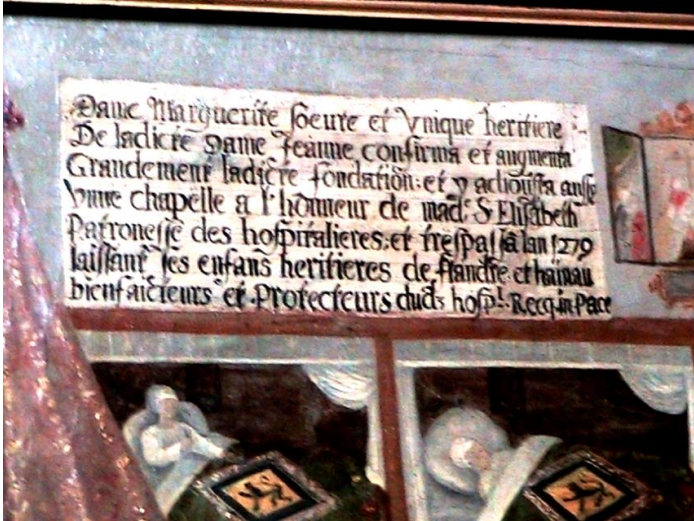 Dame Marguerite soeure et Vnique heritiere
De ladicte Dame Jeanne confirma et augmenta
Grandement ladicte fondation: et y adiousta aussy
Vnne chapelle a l'honneur de mad.e S. Elisabeth
Patronesse des hospitalieres: et trespassa lan 1279
laissant ses enfans heritieres de flandre et hainau
bienfaicteurs et Protecteurs dudt hospl. Recq. in Pace